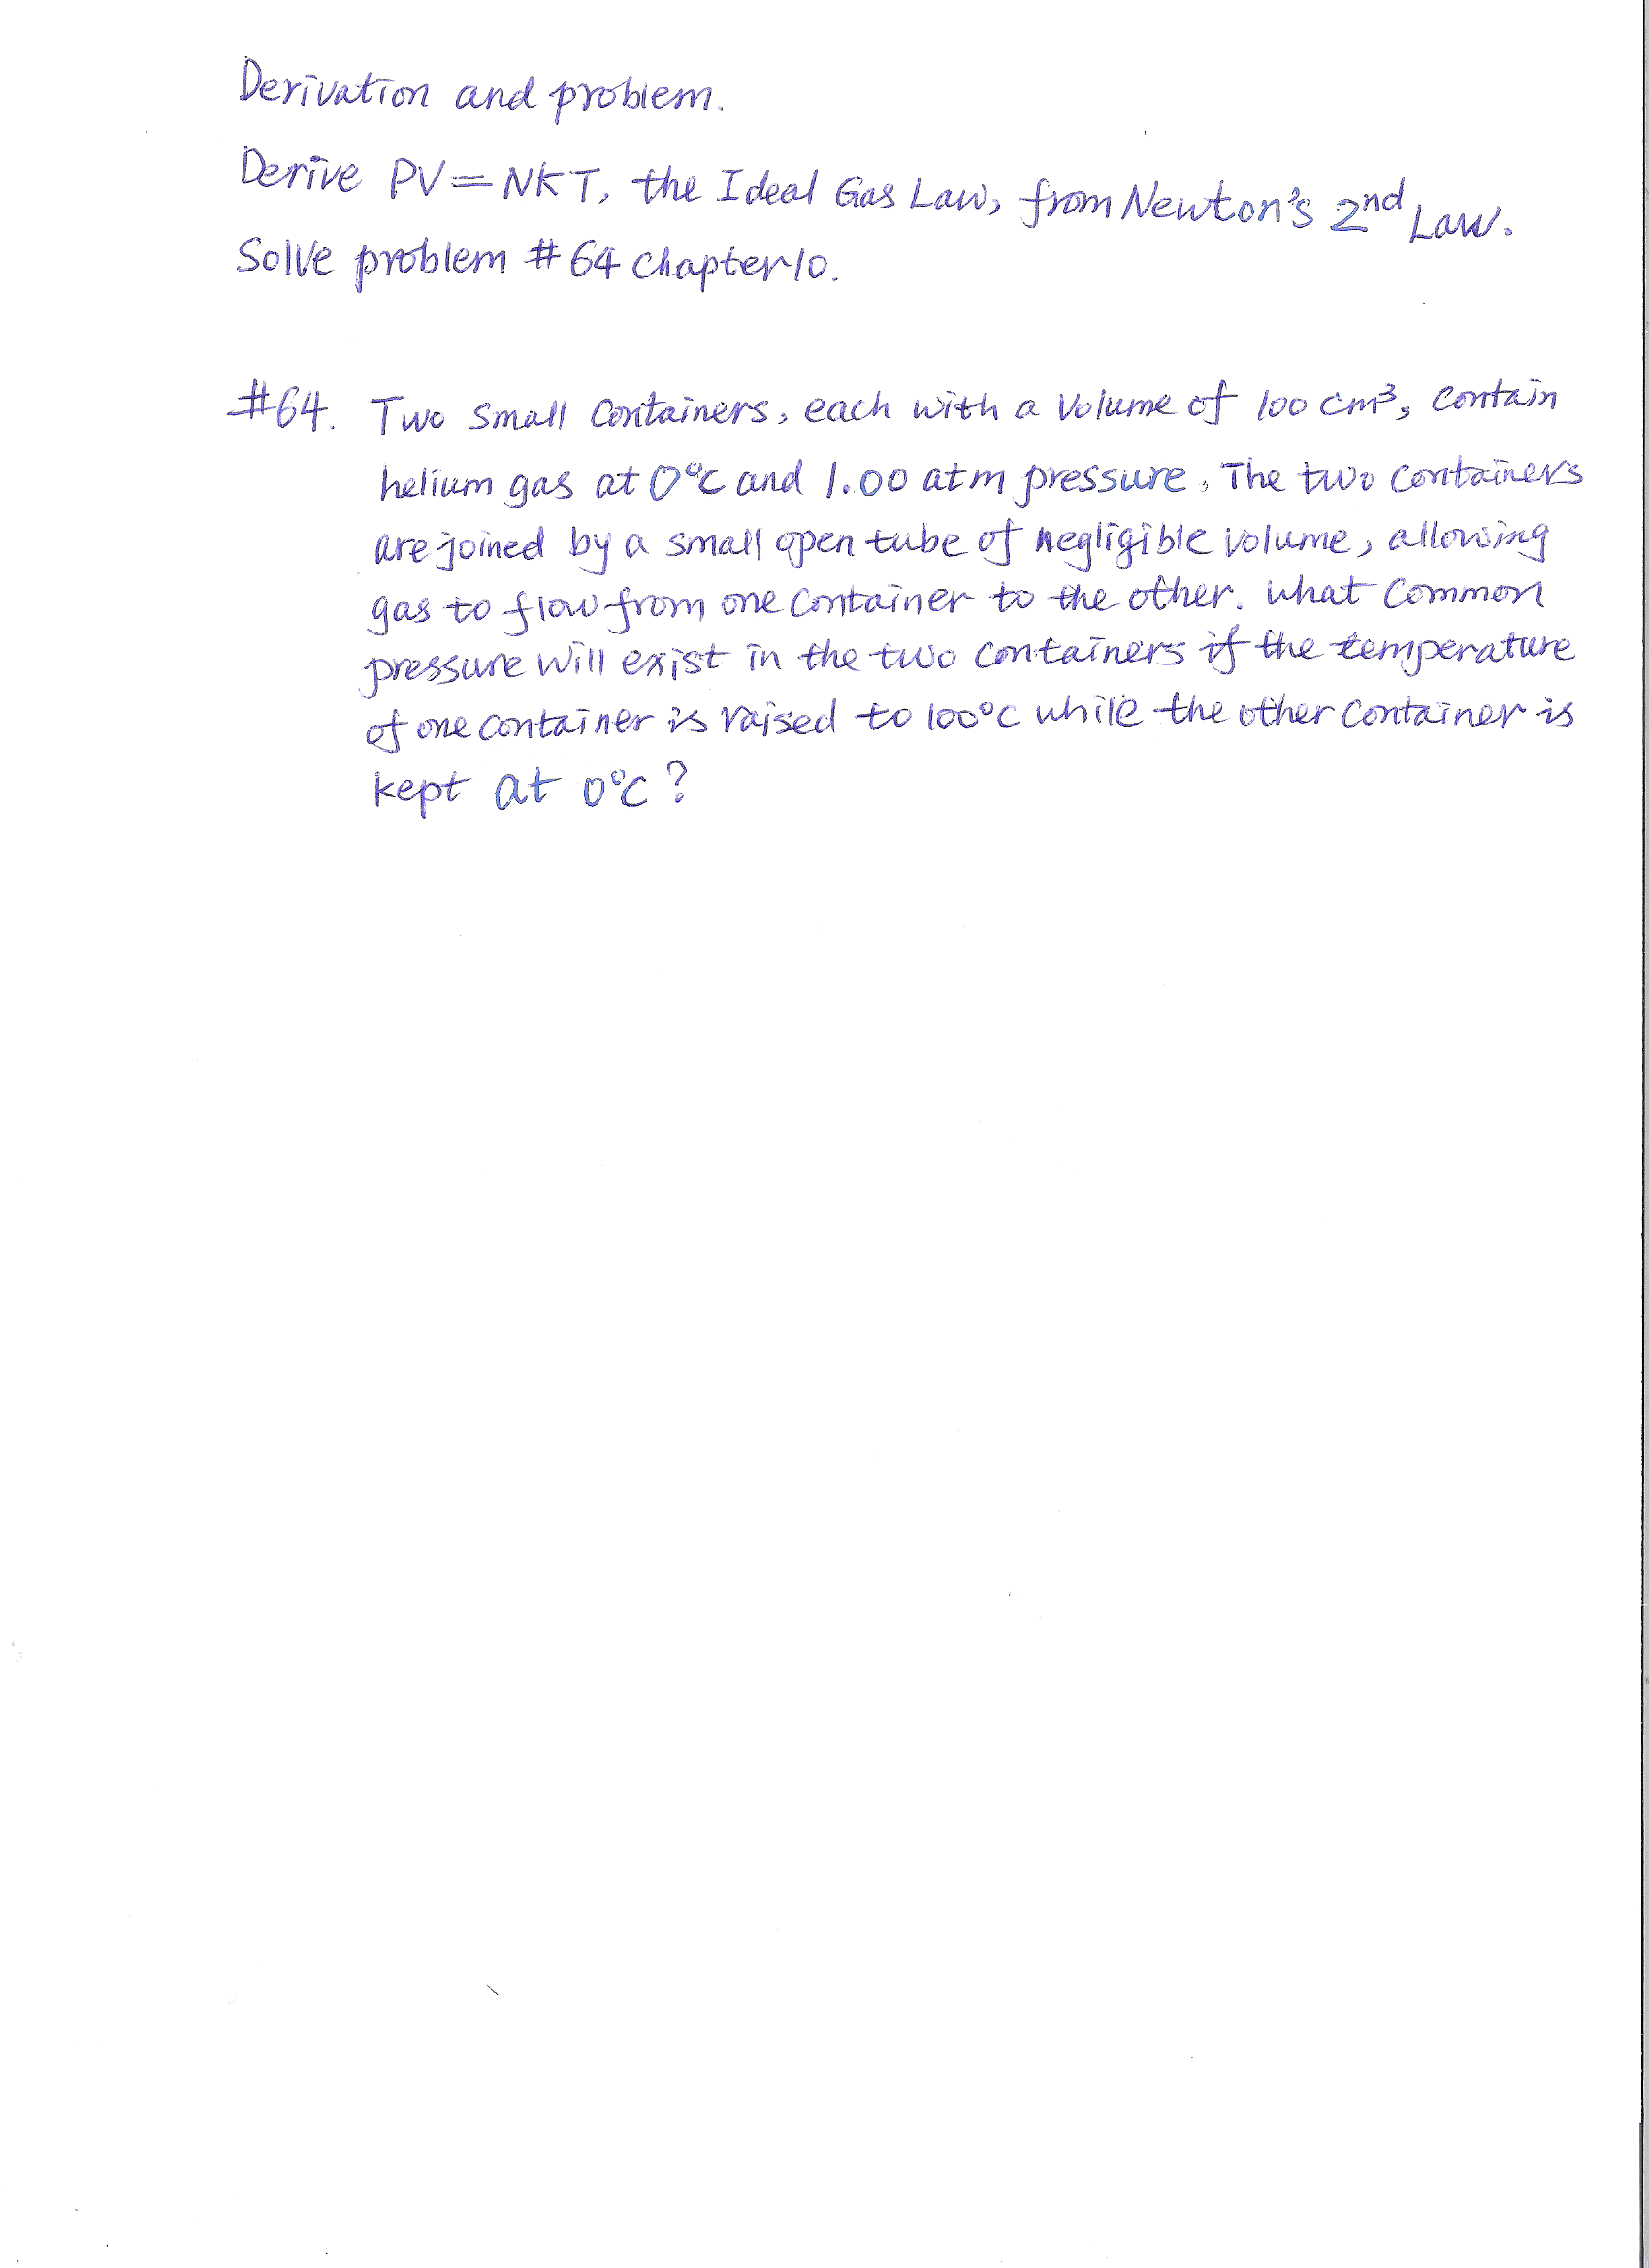 Derivation and problem.
Derive PV=NKT, the Ideal Gas Law, from Newton's 2nd Law.
Solve problem #64 chapter 10.
#64. Two small containers, each with a volume of 100 cm³, contain
helium gas at 0°C and 1.00 atm pressure. The two containers
are joined by a small open tube of negligible volume, allowing
gas to flow from one container to the other. what common
pressure will exist in the two containers if the temperature
of one container is raised to 100°C while the other container is
kept at 0°C?